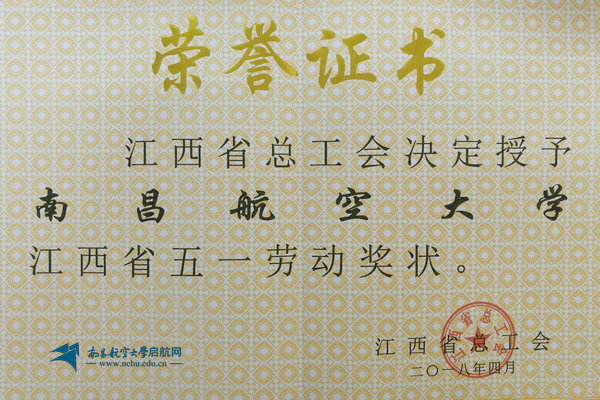 荣誉证书
江西省总工会决定授予
南昌航空大学
江西省五一劳动奖状。
江西省总工会
二〇一八年四月
江西省总工会
南昌航空大学启航网
www.nchu.edu.cn